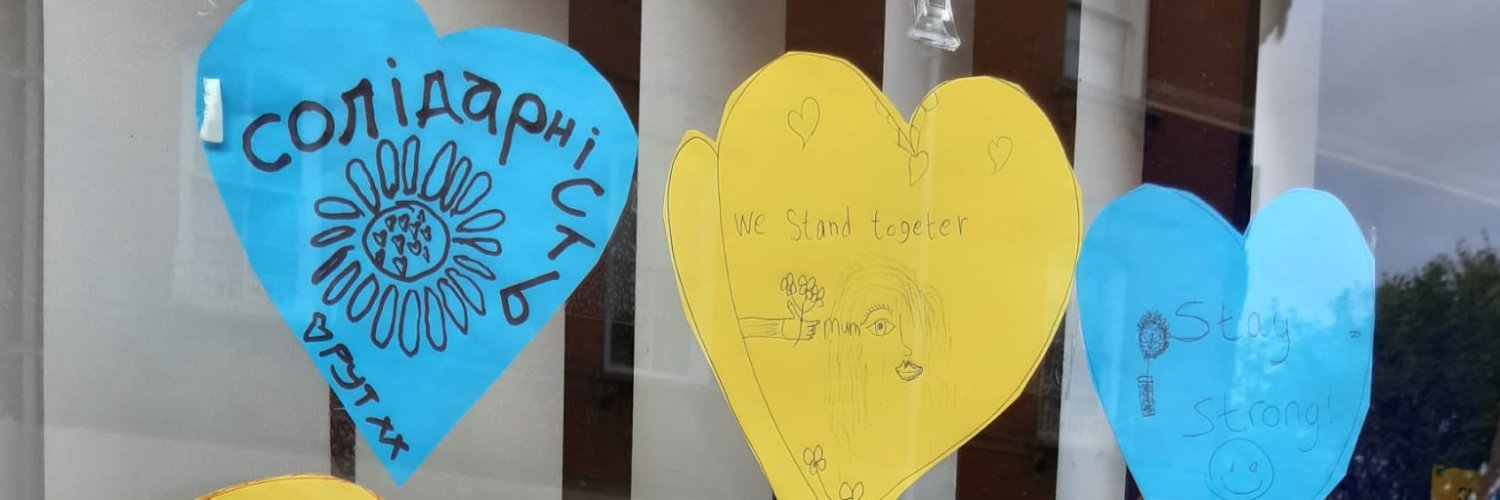 Солідарність
РУТ xx
We Stand togeter
mum
Stay
Strong!